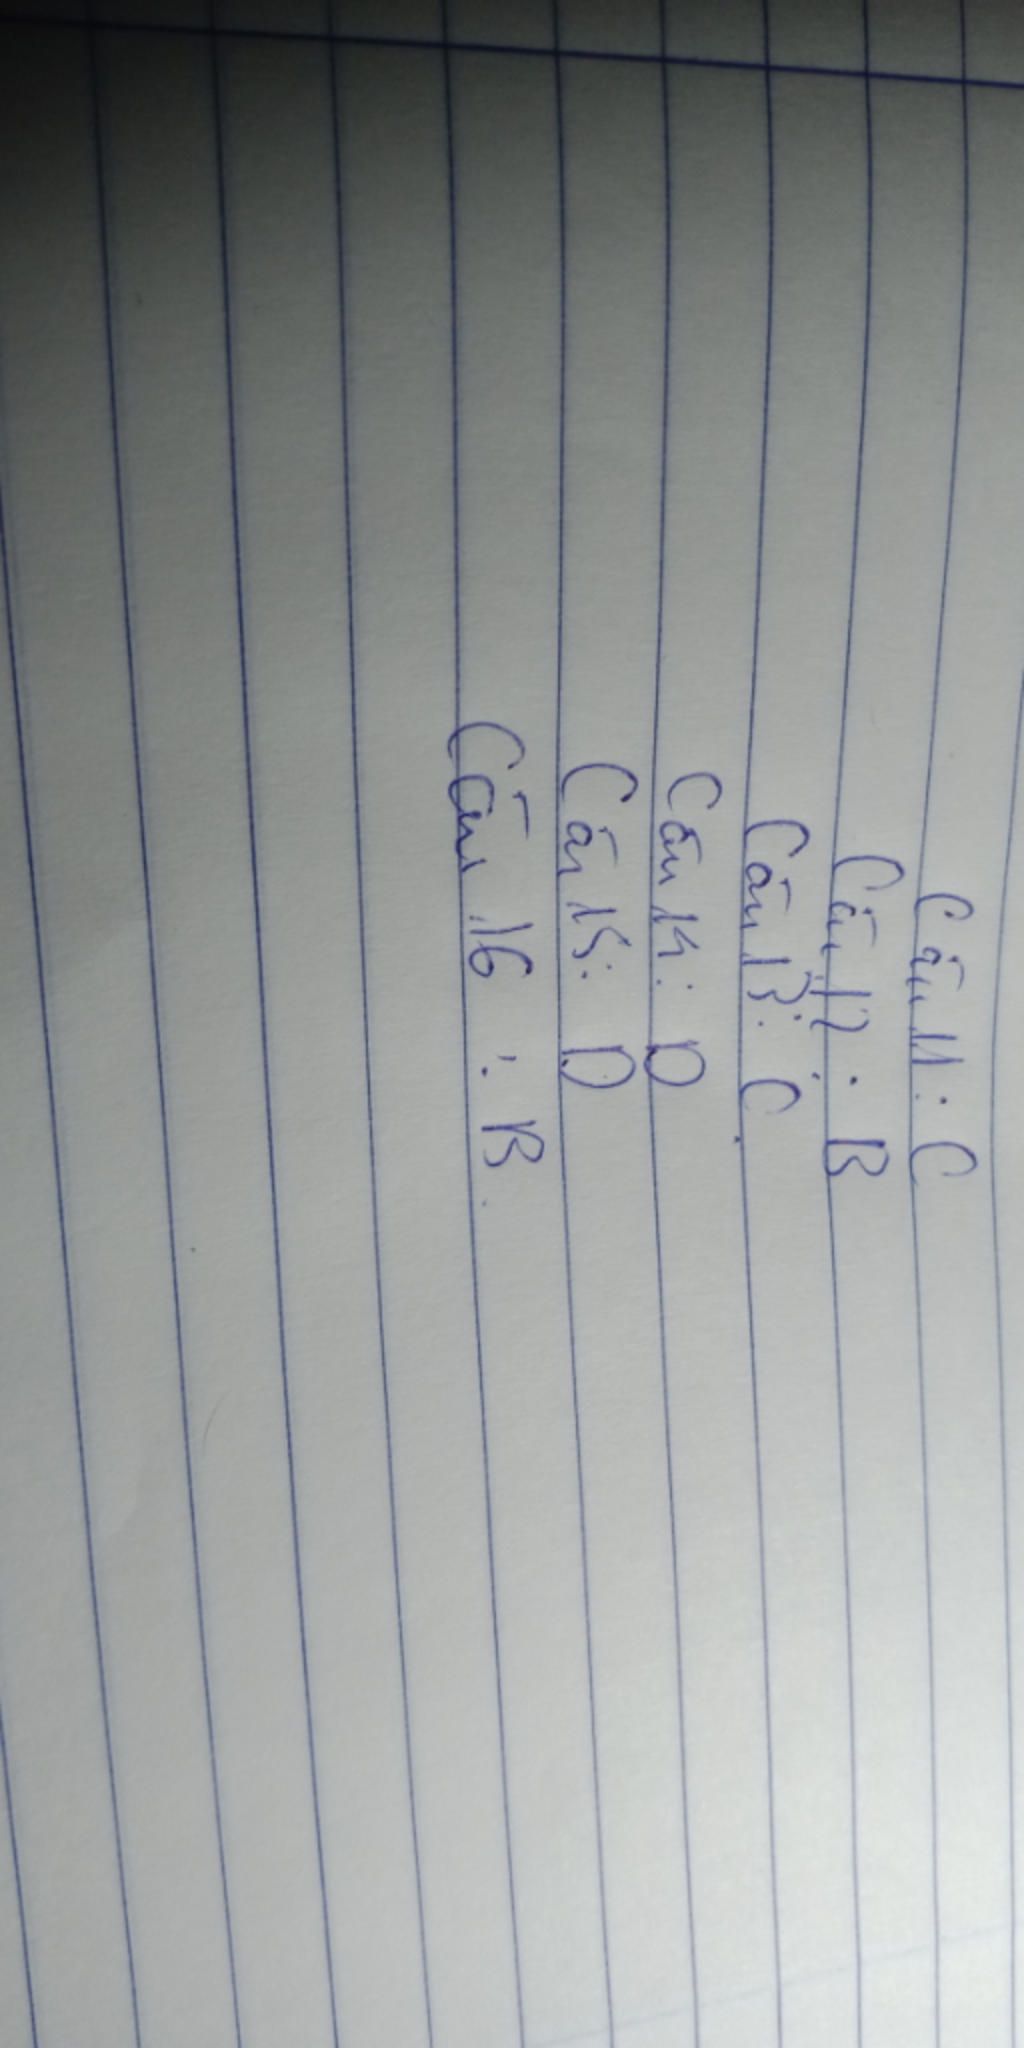 Câu 11: C
Câu 12: B
Câu 13: C
Câu 14: D
Câu 15: D
Câu 16: B.